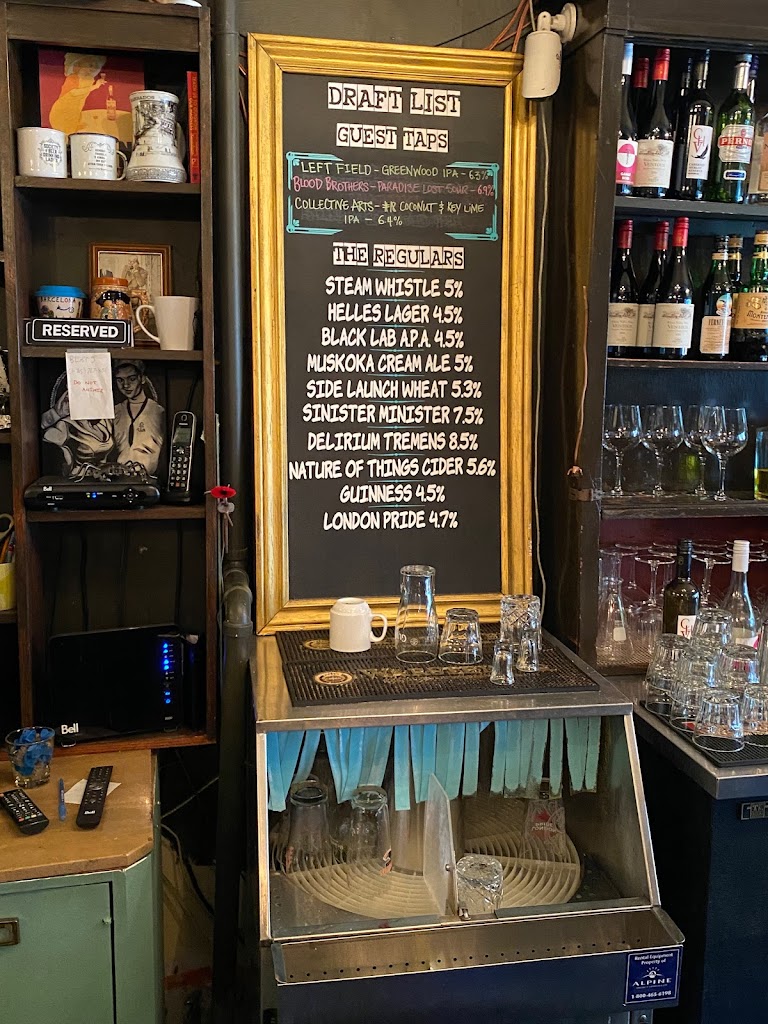 DRAFT LIST
GUEST TAPS
LEFT FIELD - GREENWOOD IPA - 6.3%
BLOOD BROTHERS - PARADISE LOST SOUR - 6.9%
COLLECTIVE ARTS - #12 COCONUT & KEY LIME
IPA - 6.4%
THE REGULARS
STEAM WHISTLE 5%
HELLES LAGER 4.5%
BLACK LAB A.P.A. 4.5%
MUSKOKA CREAM ALE 5%
SIDE LAUNCH WHEAT 5.3%
SINISTER MINISTER 7.5%
DELIRIUM TREMENS 8.5%
NATURE OF THINGS CIDER 5.6%
GUINNESS 4.5%
LONDON PRIDE 4.7%
BARCELONA
RESERVED
DO NOT
Bell
PERNO
Rental Equipment
Property of
ALPINE
1-800-465-6198